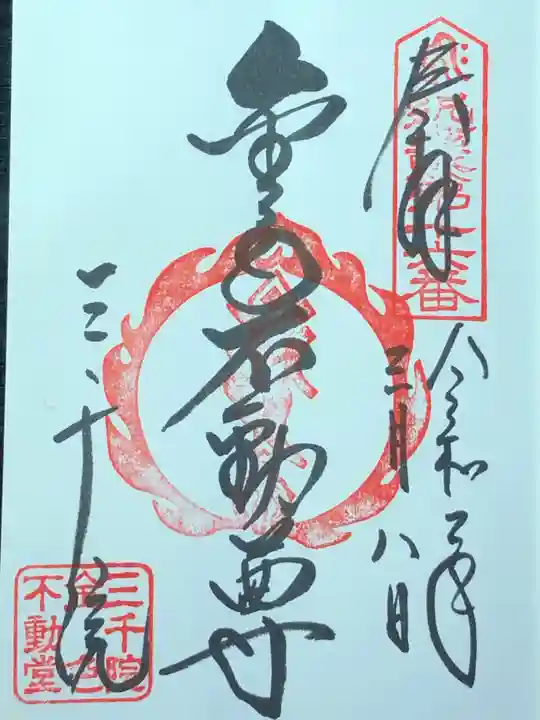 奉拝
第十六番
令和二年
三月八日
金色不動尊
三千院
三千院
金色
不動堂